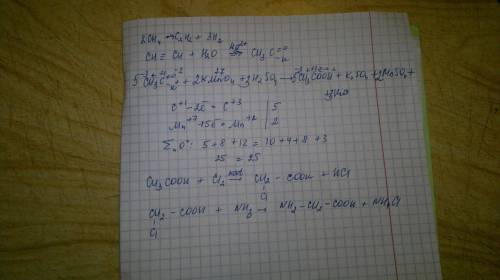 2CH₄ → C₂H₂ + 3H₂
CH ≡ CH + H₂O ⇌ CH₃C
5 CH₃C + 2KMnO₄ + 3H₂SO₄ → 5CH₃COOH + K₂SO₄ + 2MnSO₄ +
3H₂O
C⁺¹ - 2ē = C⁺³ | 5
Mn⁺⁷ + 5ē = Mn⁺² | 2
5 + 8 + 12 = 10 + 4 + 8 + 3
25 = 25
CH₃COOH + Cl₂ → CH₂ - COOH + HCl
Cl
CH₂ - COOH + NH₃ → NH₂ - CH₂ - COOH + NH₄Cl
Cl